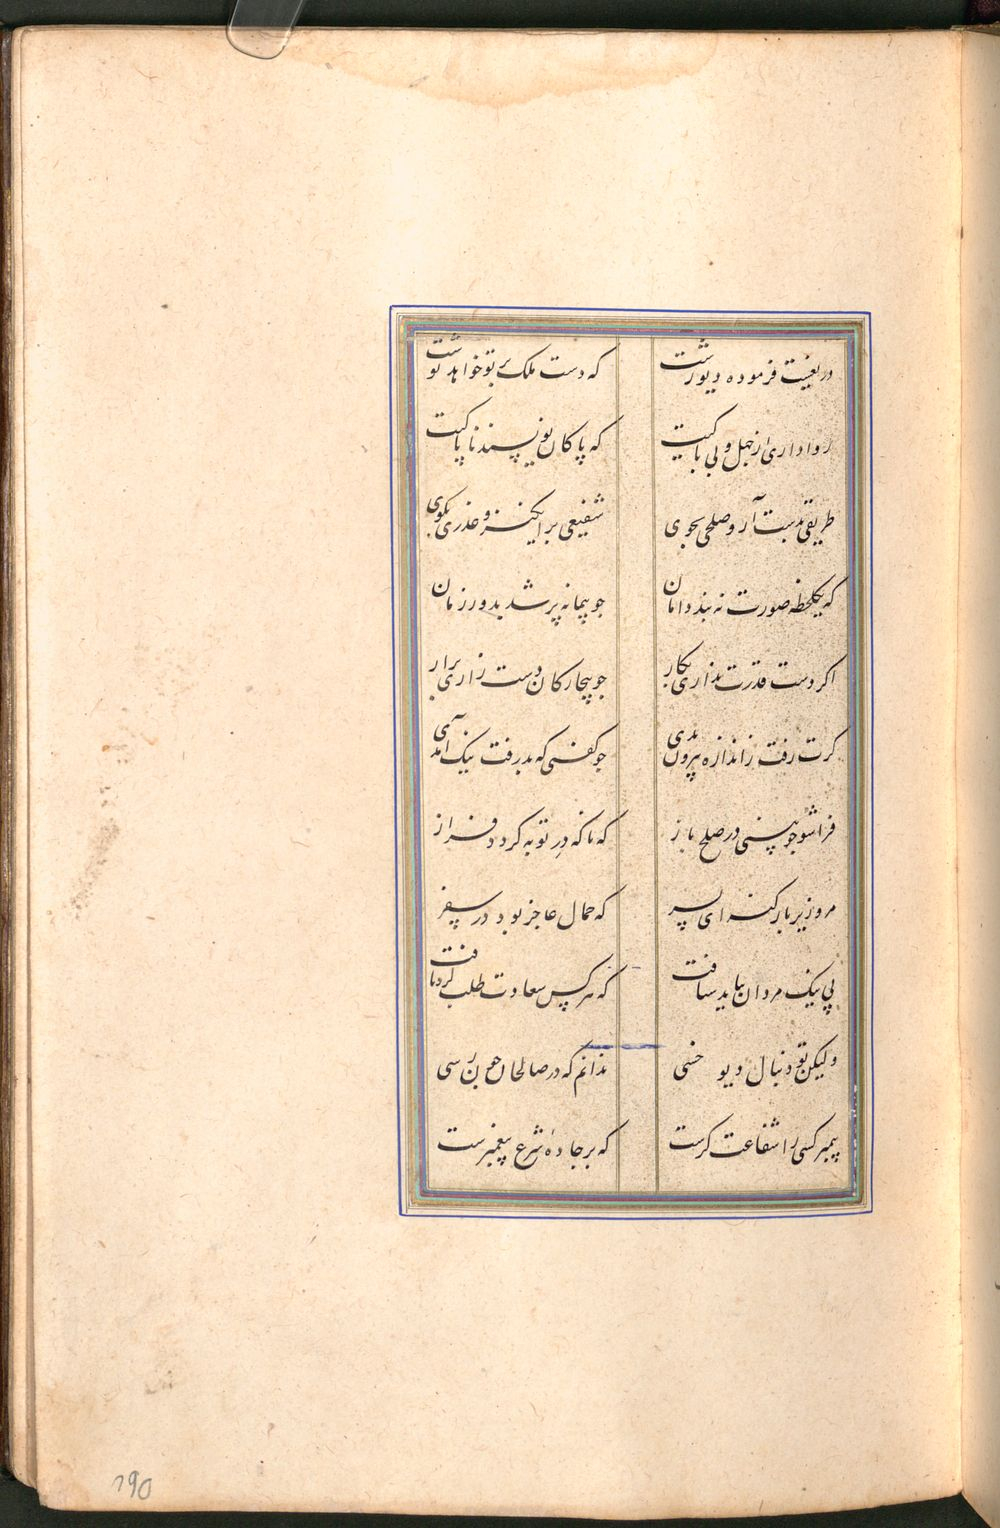 دریغست فرموده دیو زشت که دست ملک بر تو خواهد نوشت
رواداری از جهل و بی باکیت که پاکان نویسند ناپاکیت
طریقی بدست آر و صلحی بجوی شفیعی برانکیز و عذری بکوی
که یکلحظه صورت نه بندد امان جو پیمانه پر شد بدور زمان
اکر دست قدرت نداری بکار جو بیجارکان دست زاری برار
کرت رفت ز اندازه بیرون بدی جو کفتی که بد رفت نیک آمدی
فراشو جو بینی در صلح باز که ناکه در توبه کردد فراز
مرو زیر بار کنه ای پسر که حمال عاجز بود در سفر
پی نیک مردان بباید شتافت که هر کس سعادت طلب کرد یافت
ولیکن تو دنبال دیو خسی ندانم که در صالحان جون رسی
پیمبر کسی را شفاعت کرست که بر جادهٔ شرع پیغمبرست
190